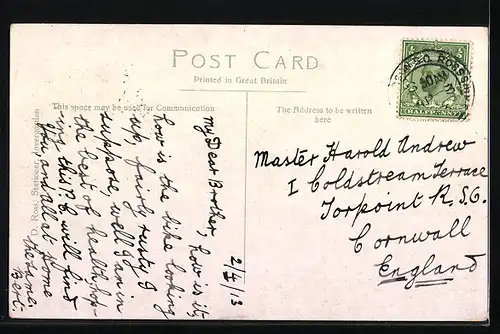 POST CARD
Printed in Great Britain
This space may be used for Communication
The Address to be written
here
2/7/13
My Dear Brother, how is it,
how is the bike looking
up, fairly rusty I
suppose, well I am in
the best of health, hop-
ing this P.C. will find
you and all at home
the same,
Bert.
Master Harold Andrew
1 Coldstream Terrace
Torpoint R.S.O.
Cornwall
England
D. Ross, Stationer, Invergordon
HALFPENNY